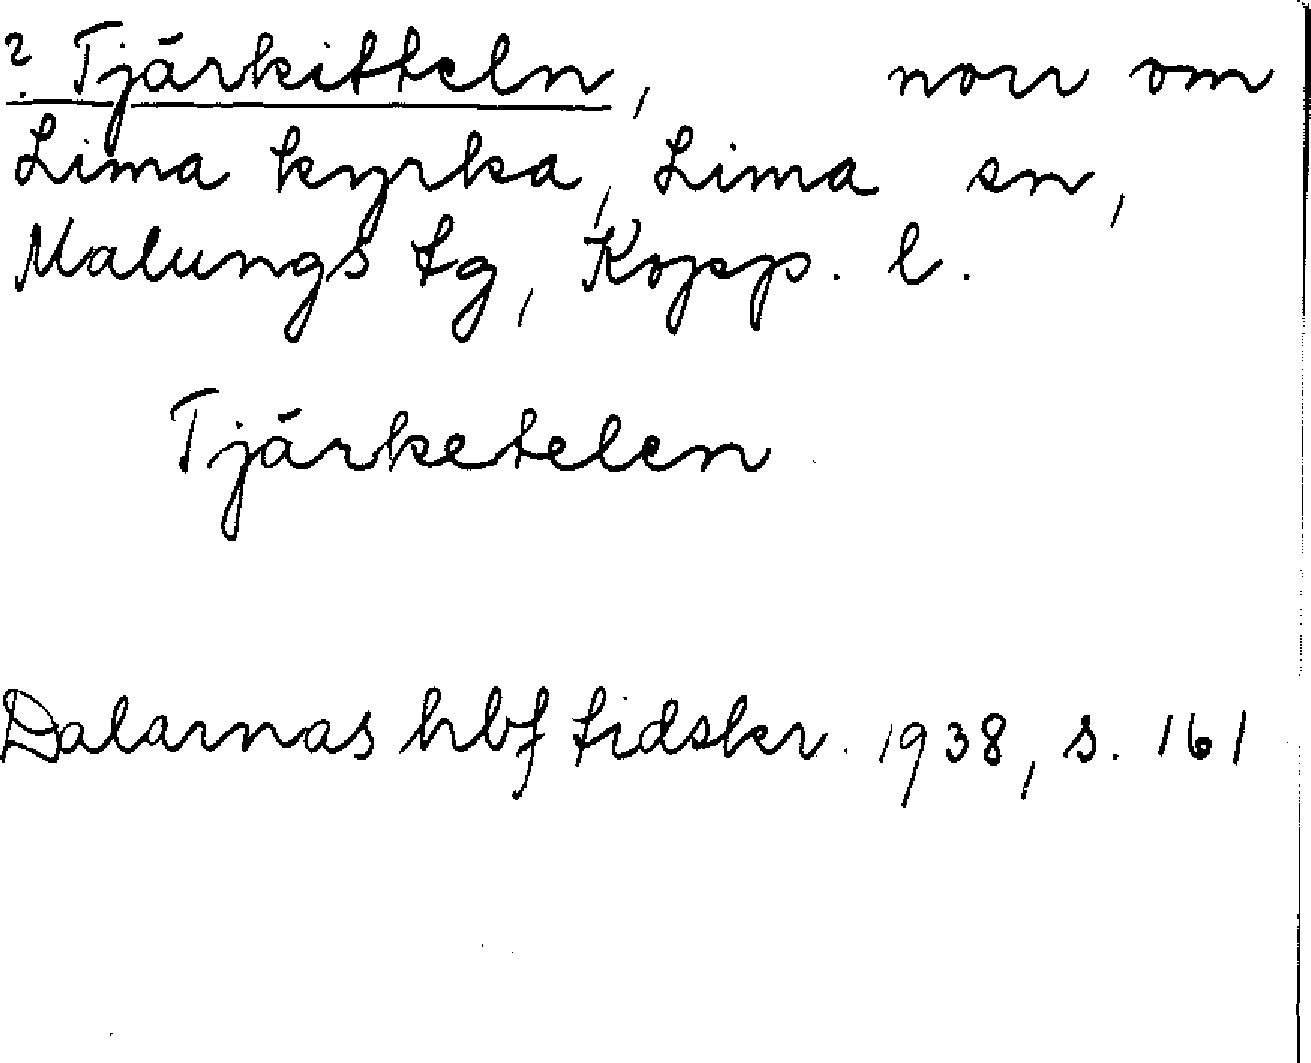 ? Tjärkitteln, norr om
Lima kyrka, Lima sn,
Malungs tg, Kopp. l.
Tjärketelen
Dalarnas hbf tidskr. 1938, s. 161